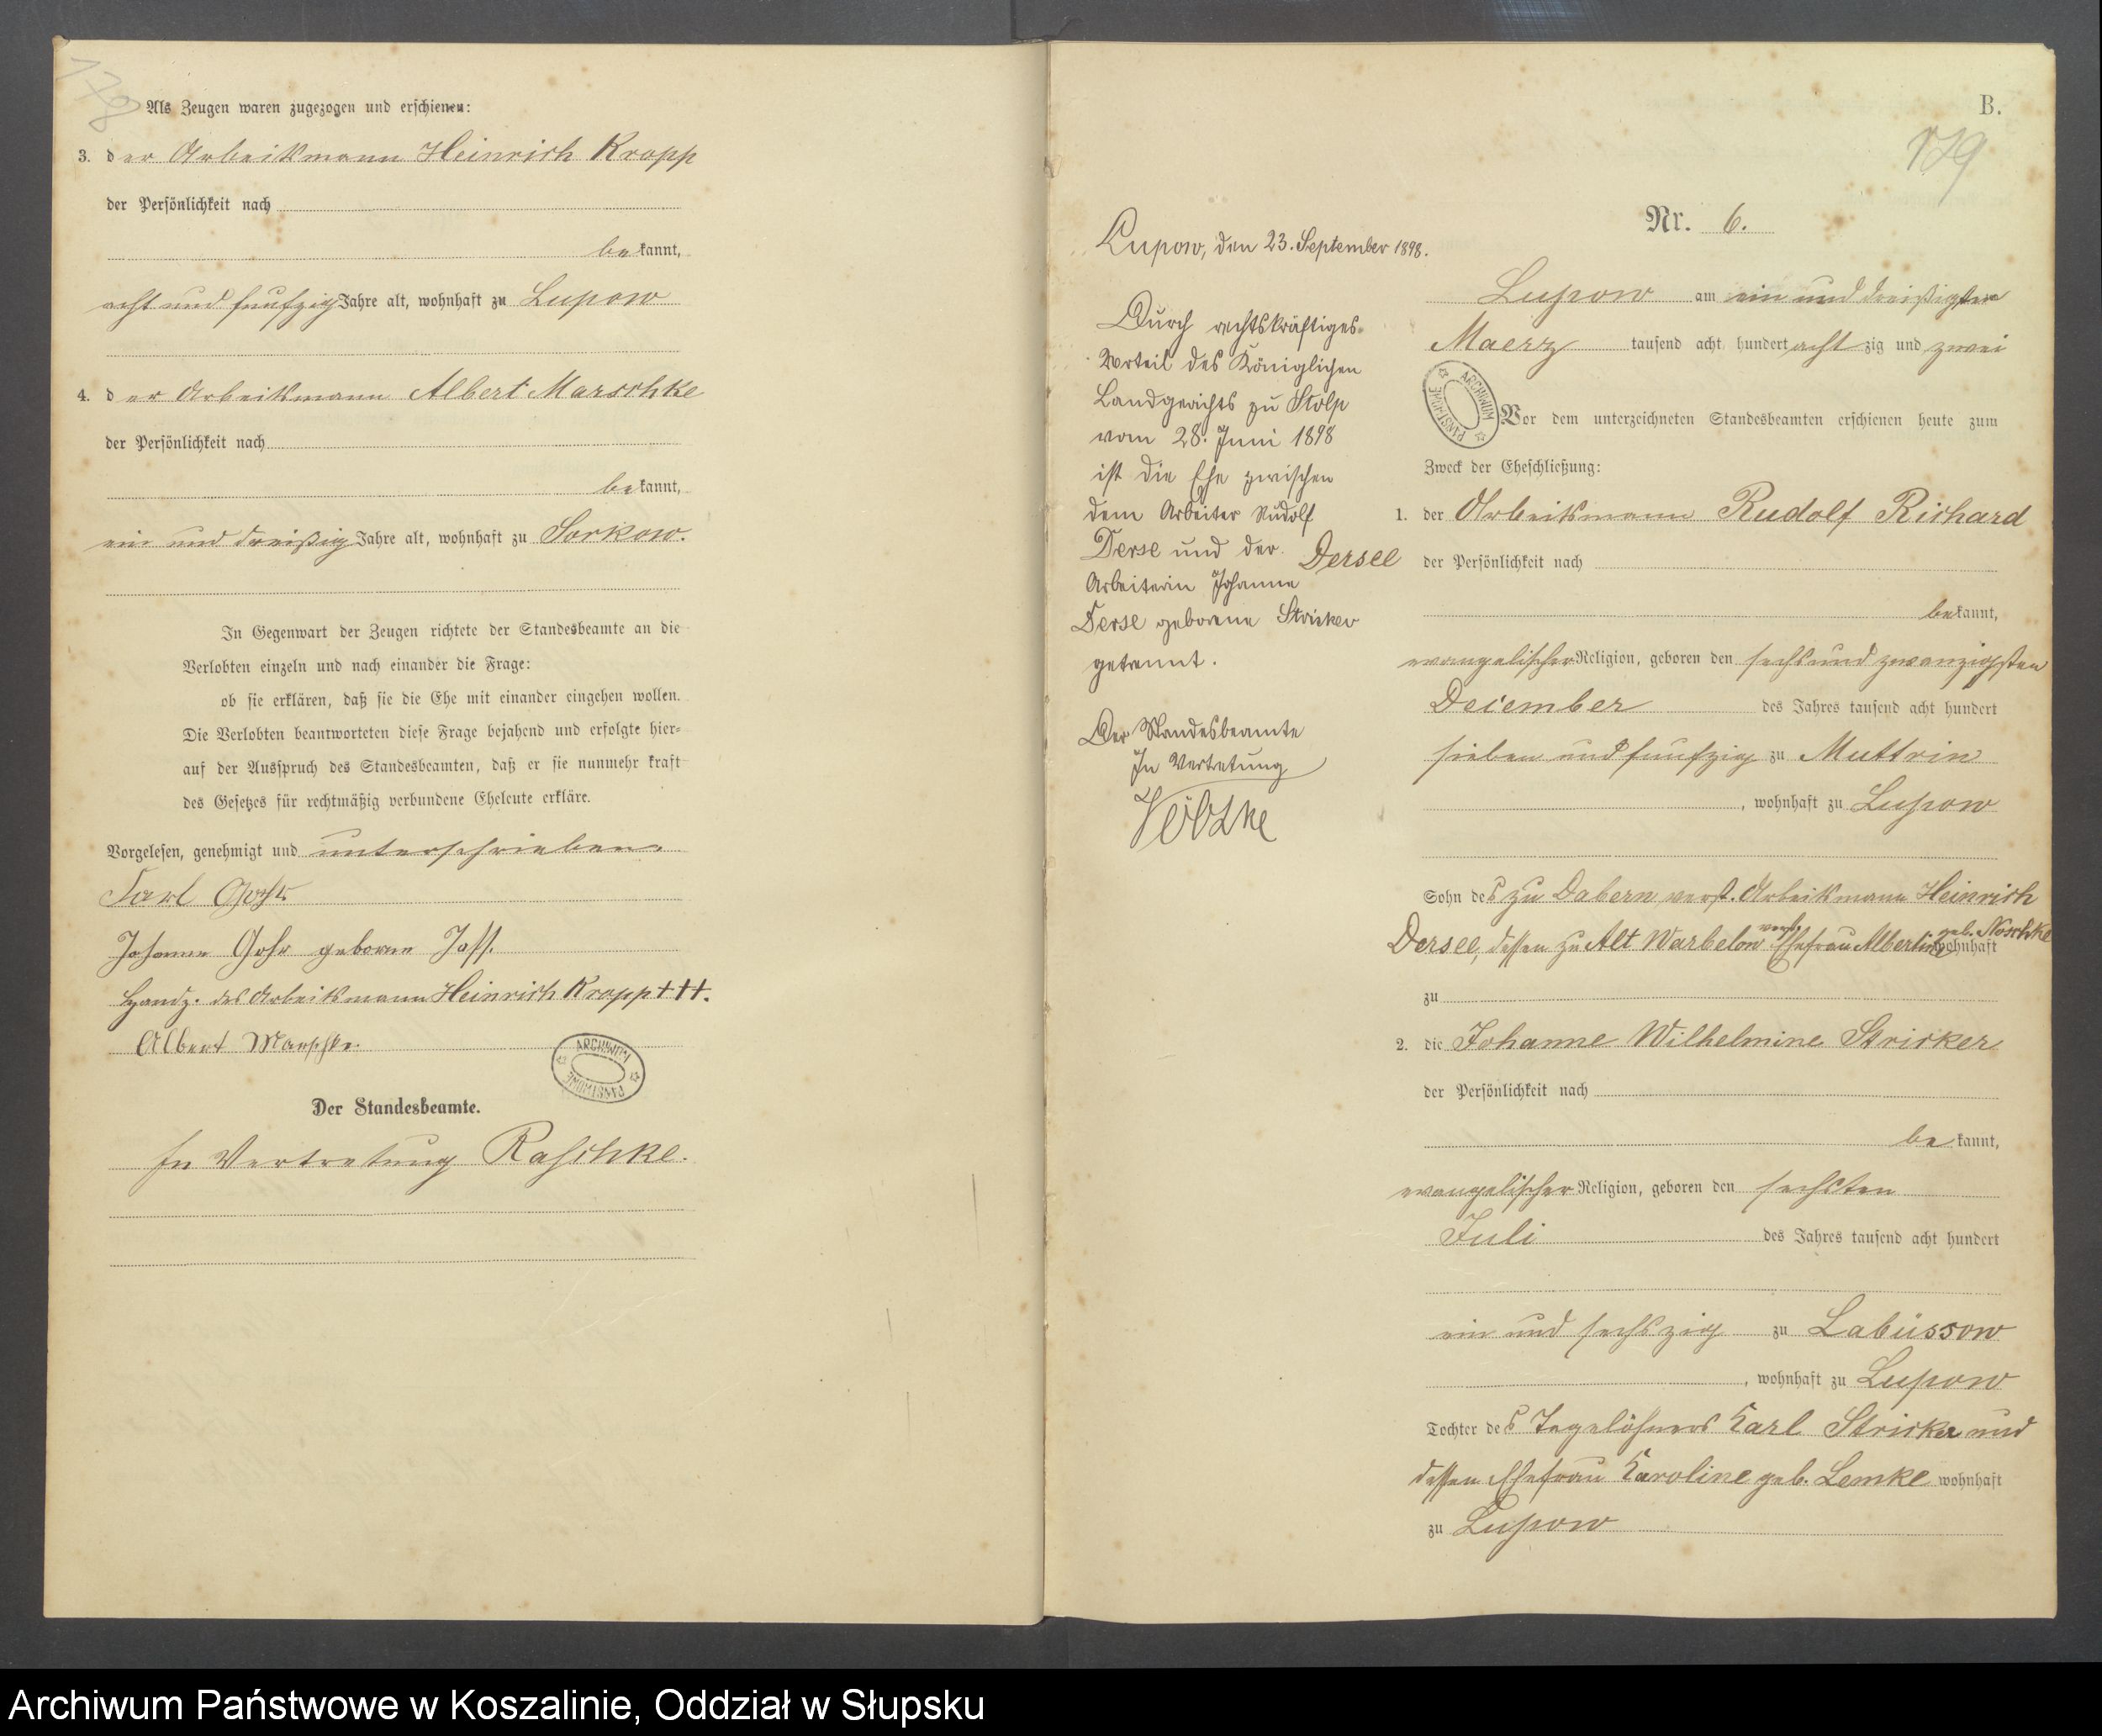 178
Als Zeugen waren zugezogen und erschienen:
3. der Arbeitsmann Heinrich Kropp
der Persönlichkeit nach
bekannt,
acht und funfzig Jahre alt, wohnhaft zu Lupow
4. der Arbeitsmann Albert Marschke
der Persönlichkeit nach
bekannt,
ein und dreißig Jahre alt, wohnhaft zu Sorkow.
In Gegenwart der Zeugen richtete der Standesbeamte an die
Verlobten einzeln und nach einander die Frage:
ob sie erklären, daß sie die Ehe mit einander eingehen wollen.
Die Verlobten beantworteten diese Frage bejahend und erfolgte hier-
auf der Ausspruch des Standesbeamten, daß er sie nunmehr kraft
des Gesetzes für rechtmäßig verbundene Eheleute erkläre.
Vorgelesen, genehmigt und unterschrieben.
Carl Gohr
Johanne Gohr geborne Joss.
Handz. des Arbeitsmann Heinrich Kropp +++.
Albert Marschke.
ARCHIWUM PAŃSTWOWE
Der Standesbeamte.
In Vertretung Raschke.
B.
179
Nr. 6.
Lupow am ein und dreißigsten
Maerz tausend acht hundert achtzig und zwei
ARCHIWUM PAŃSTWOWE
Vor dem unterzeichneten Standesbeamten erschienen heute zum
Zweck der Eheschließung:
1. der Arbeitsmann Rudolf Richard
Dersee der Persönlichkeit nach
bekannt,
evangelischer Religion, geboren den sechs und zwanzigsten
December des Jahres tausend acht hundert
sieben und funfzig zu Muttrin
, wohnhaft zu Lupow
Sohn des zu Dabern verst. Arbeitsmann Heinrich
Dersee, dessen zu Alt Warbelow verst. Ehefrau Albertine geb. Noschke wohnhaft
zu
2. die Johanne Wilhelmine Stricker
der Persönlichkeit nach
bekannt,
evangelischer Religion, geboren den sechsten
Juli des Jahres tausend acht hundert
ein und sechszig zu Labüssow
, wohnhaft zu Lupow
Tochter des Tagelöhners Karl Stricker und
dessen Ehefrau Karoline geb. Lemke wohnhaft
zu Lupow
Lupow, den 23. September 1898.
Durch rechtskräftiges
Urteil des Königlichen
Landgerichts zu Stolp
vom 28. Juni 1898
ist die Ehe zwischen
dem Arbeiter Rudolf
Derse und der
Arbeiterin Johanne
Derse geborene Stricker
getrennt.
Der Standesbeamte
In Vertretung
Archiwum Państwowe w Koszalinie, Oddział w Słupsku